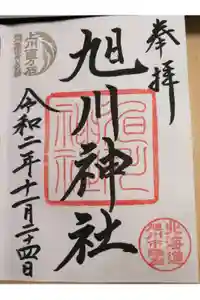 奉拝
旭川神社
令和二年十一月二十四日
旭川神社
北海道
旭川市